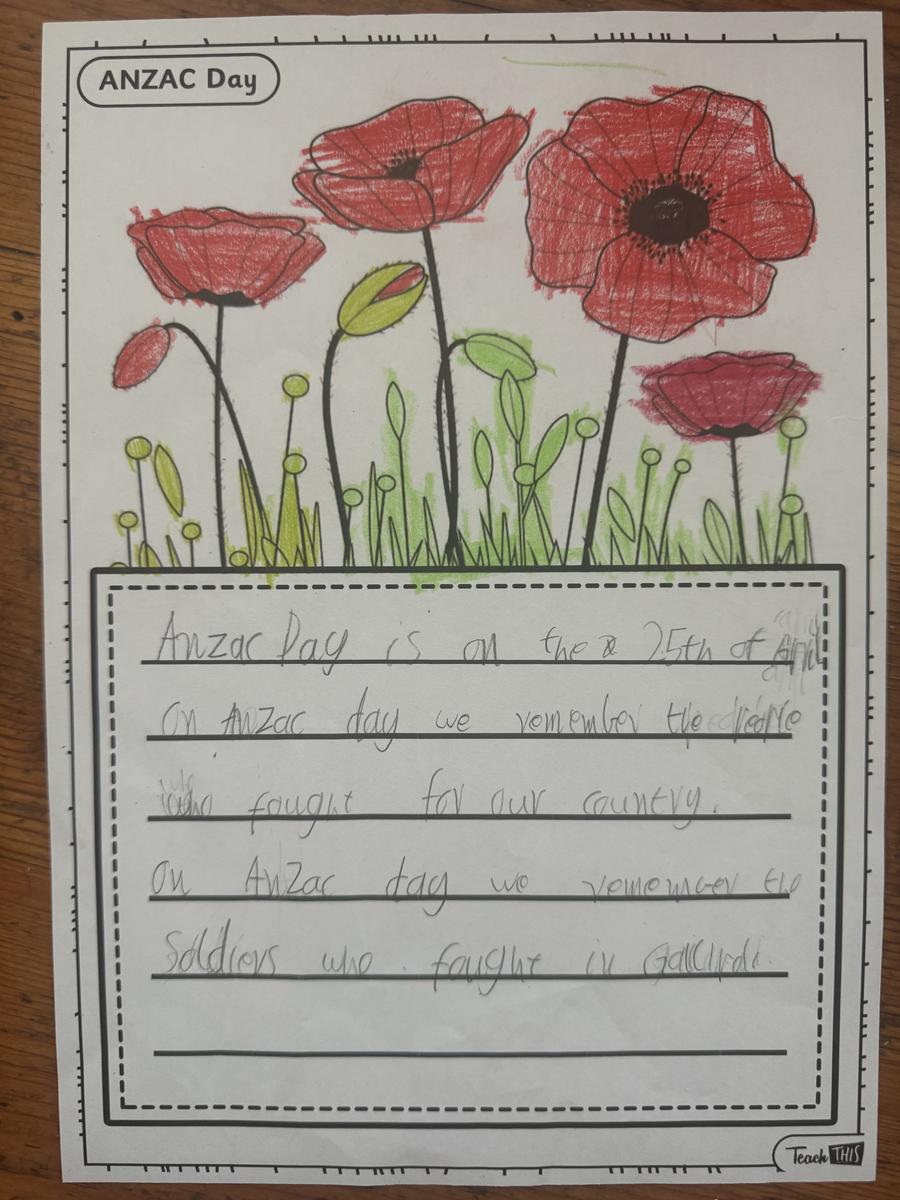 ANZAC Day
Anzac Day is on the 25th of April
On Anzac day we remember the people
who fought for our country.
On Anzac day we rememeer the
Soldiers who fought in Gallipoli.
Teach THIS